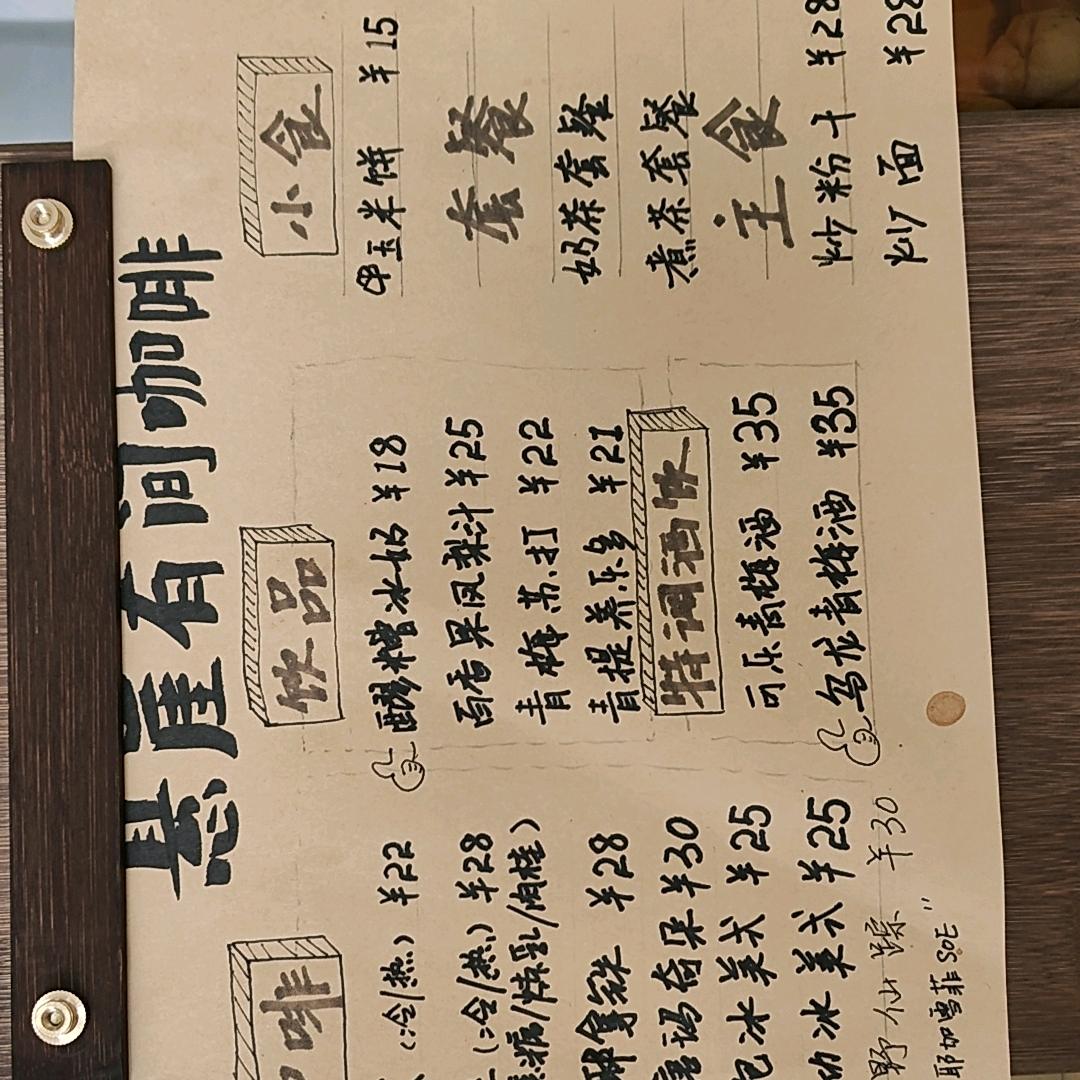 悬崖有间咖啡
啡
(冷/热) ¥22
(冷/热) ¥28
焦糖/炼乳/肉桂)
耶拿铁 ¥28
玛奇朵 ¥30
冰美式 ¥25
冰美式 ¥25
野仙踪 ¥30
耶加雪菲SOE"
饮品
醪糟冰奶 ¥18
百香果凤梨汁 ¥25
青梅苏打 ¥22
青提养乐多 ¥21
特调酒饮
可乐青梅酒 ¥35
乌龙青梅酒 ¥35
小食
玉米饼 ¥15
套餐
奶茶套餐
煮茶套餐
主食
炒粉干 ¥28
炒面 ¥28